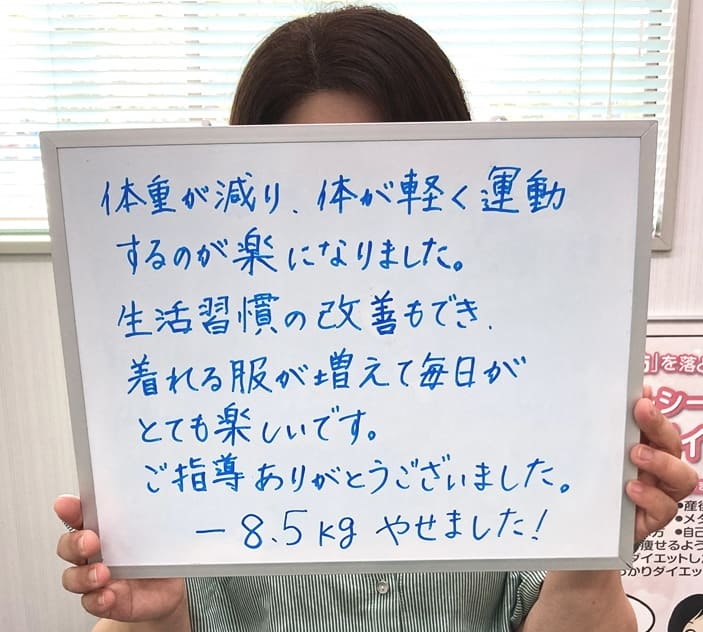 体重が減り、体が軽く運動
するのが楽になりました。
生活習慣の改善もでき、
着れる服が増えて毎日が
とても楽しいです。
ご指導ありがとうございました。
－8.5kg やせました!
を落と
シー
イ
●産後
●メタ
方 ●自己
痩せるよう
ダイエットした
かりダイエッ